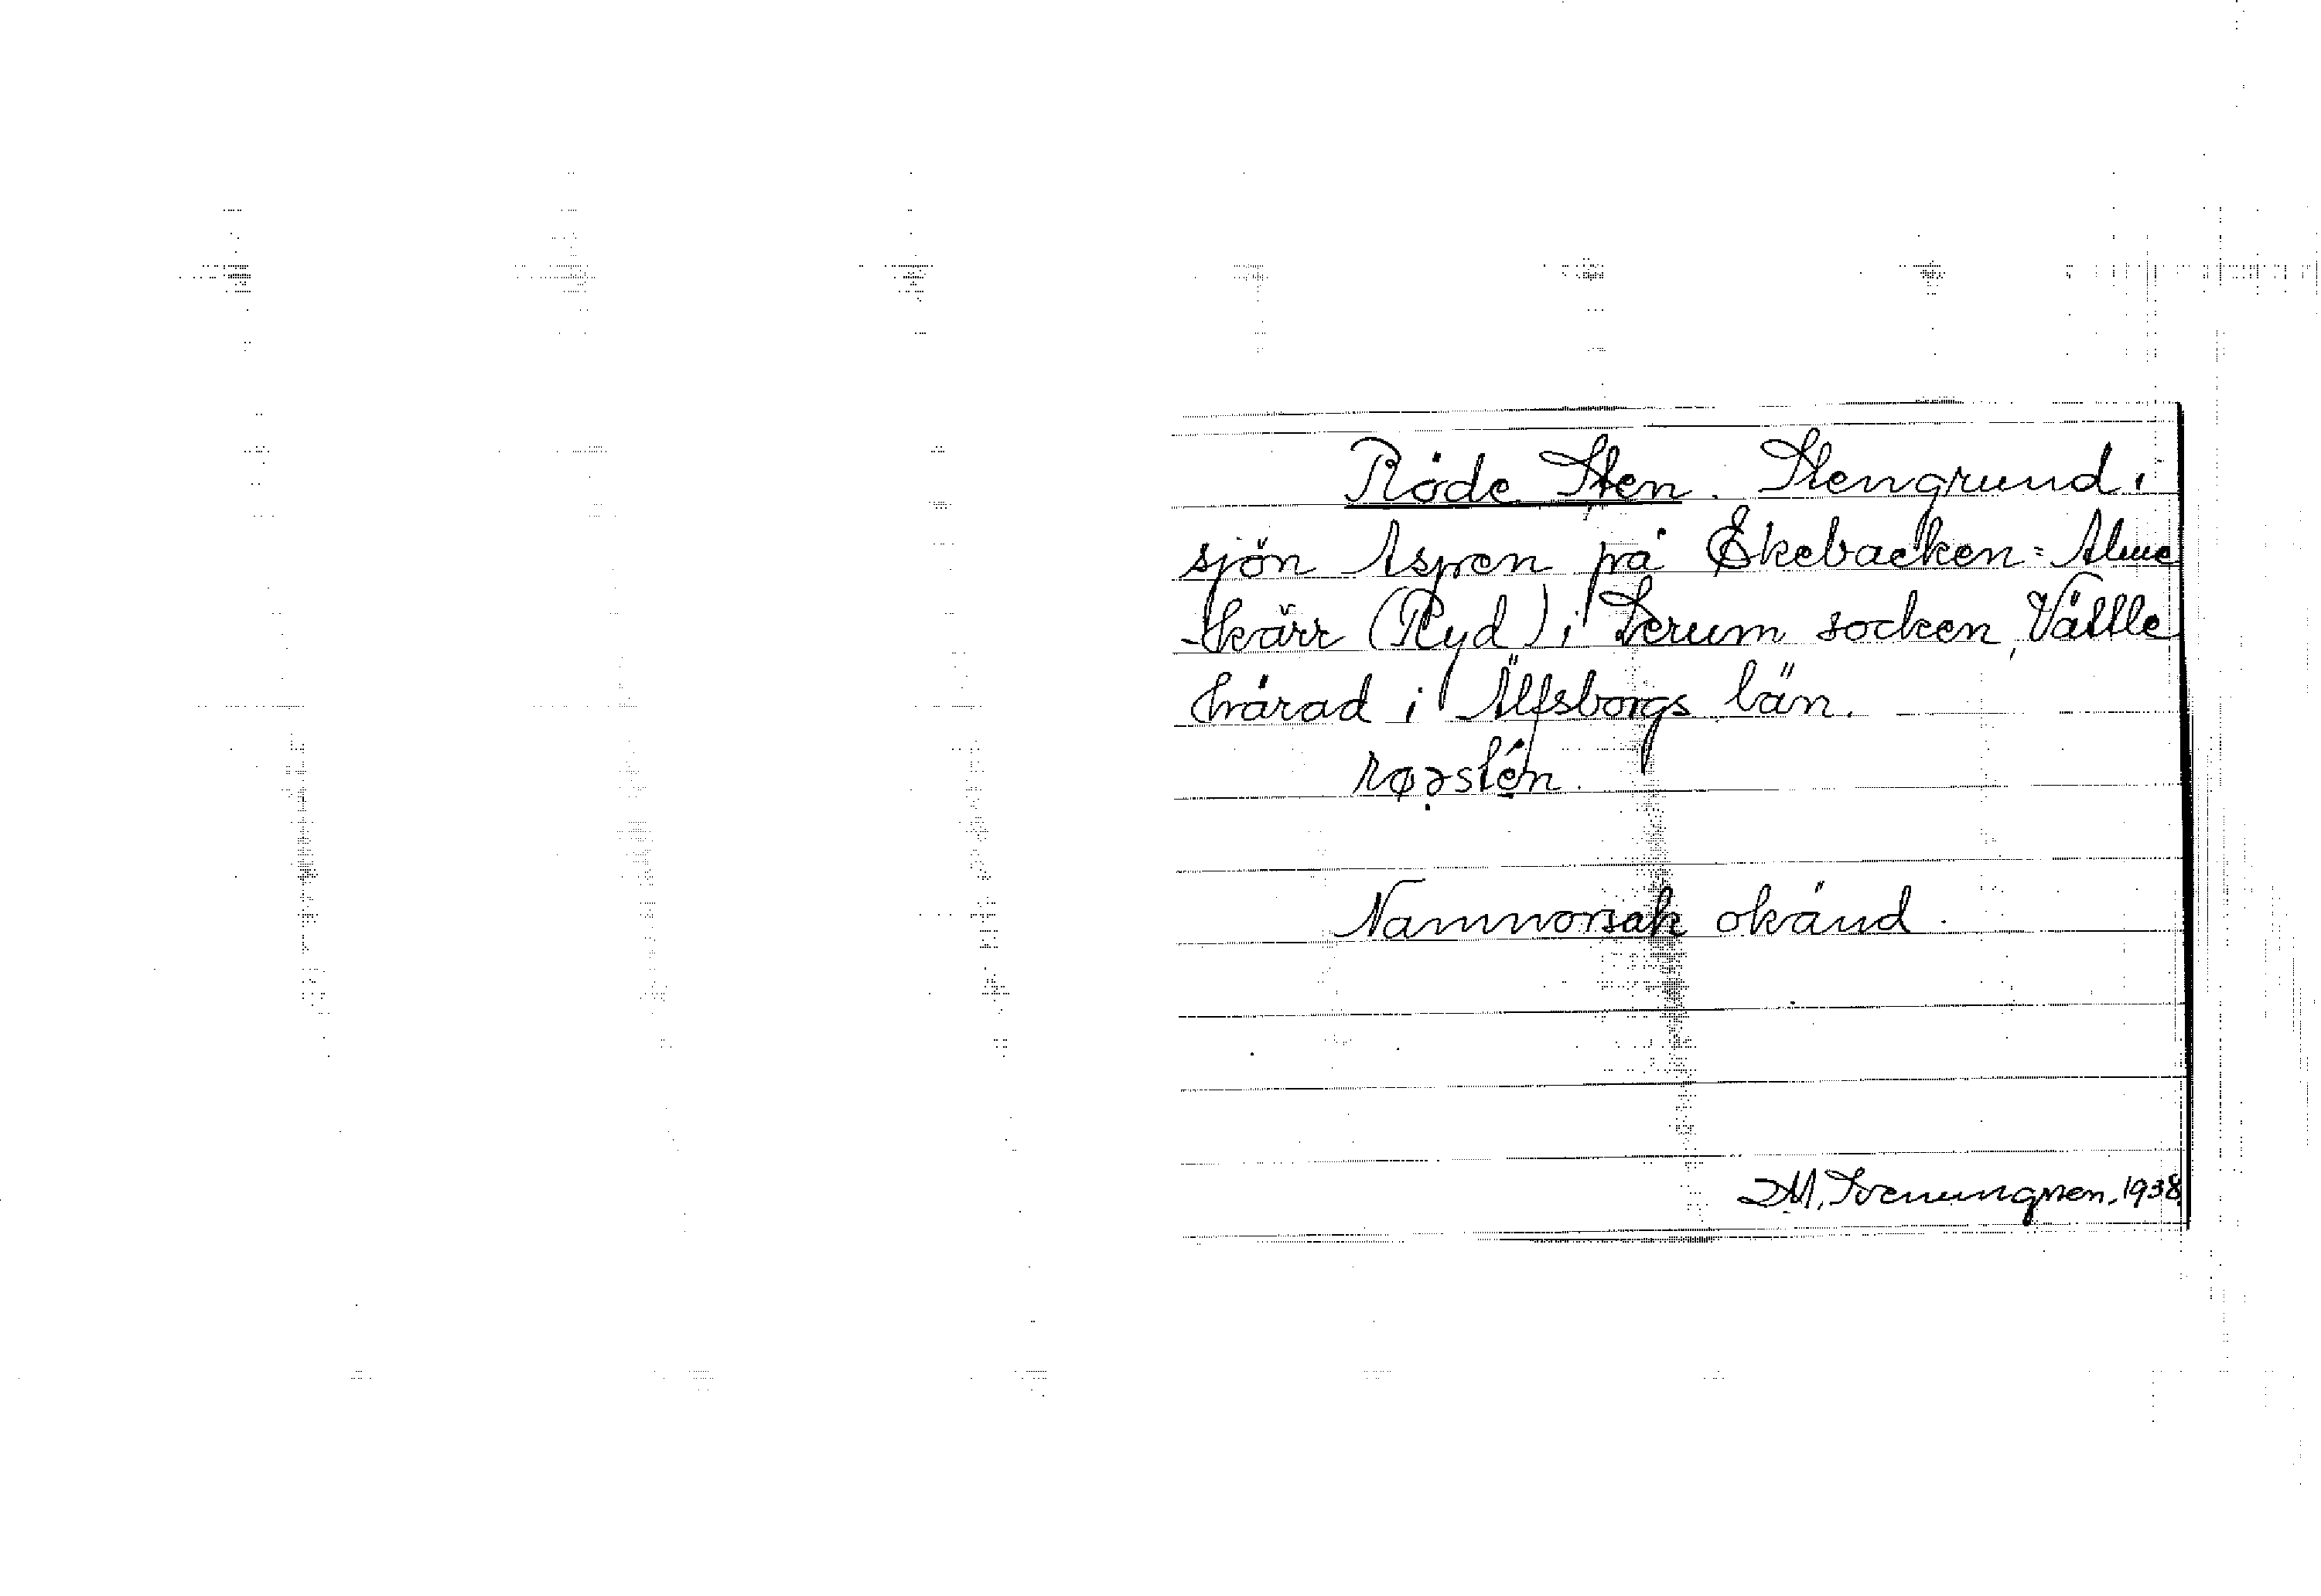 Röde Sten. Stengrund i
sjön Aspen på Ekebacken = Alme
kärr (Ryd) i Lerum socken, Vättle
härad i Älfsborgs län.
røəstén.
Namnorsak okänd.
M. 1938